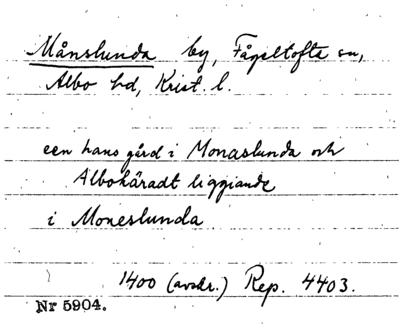 Månslunda by, Fågeltofta sn,
Albo hd, Krist. l.
een hans gård i Monaslunda och
Albohäradt liggiande
i Moneslunda
1400 (avskr.) Rep. 4403.
Nr 5904.